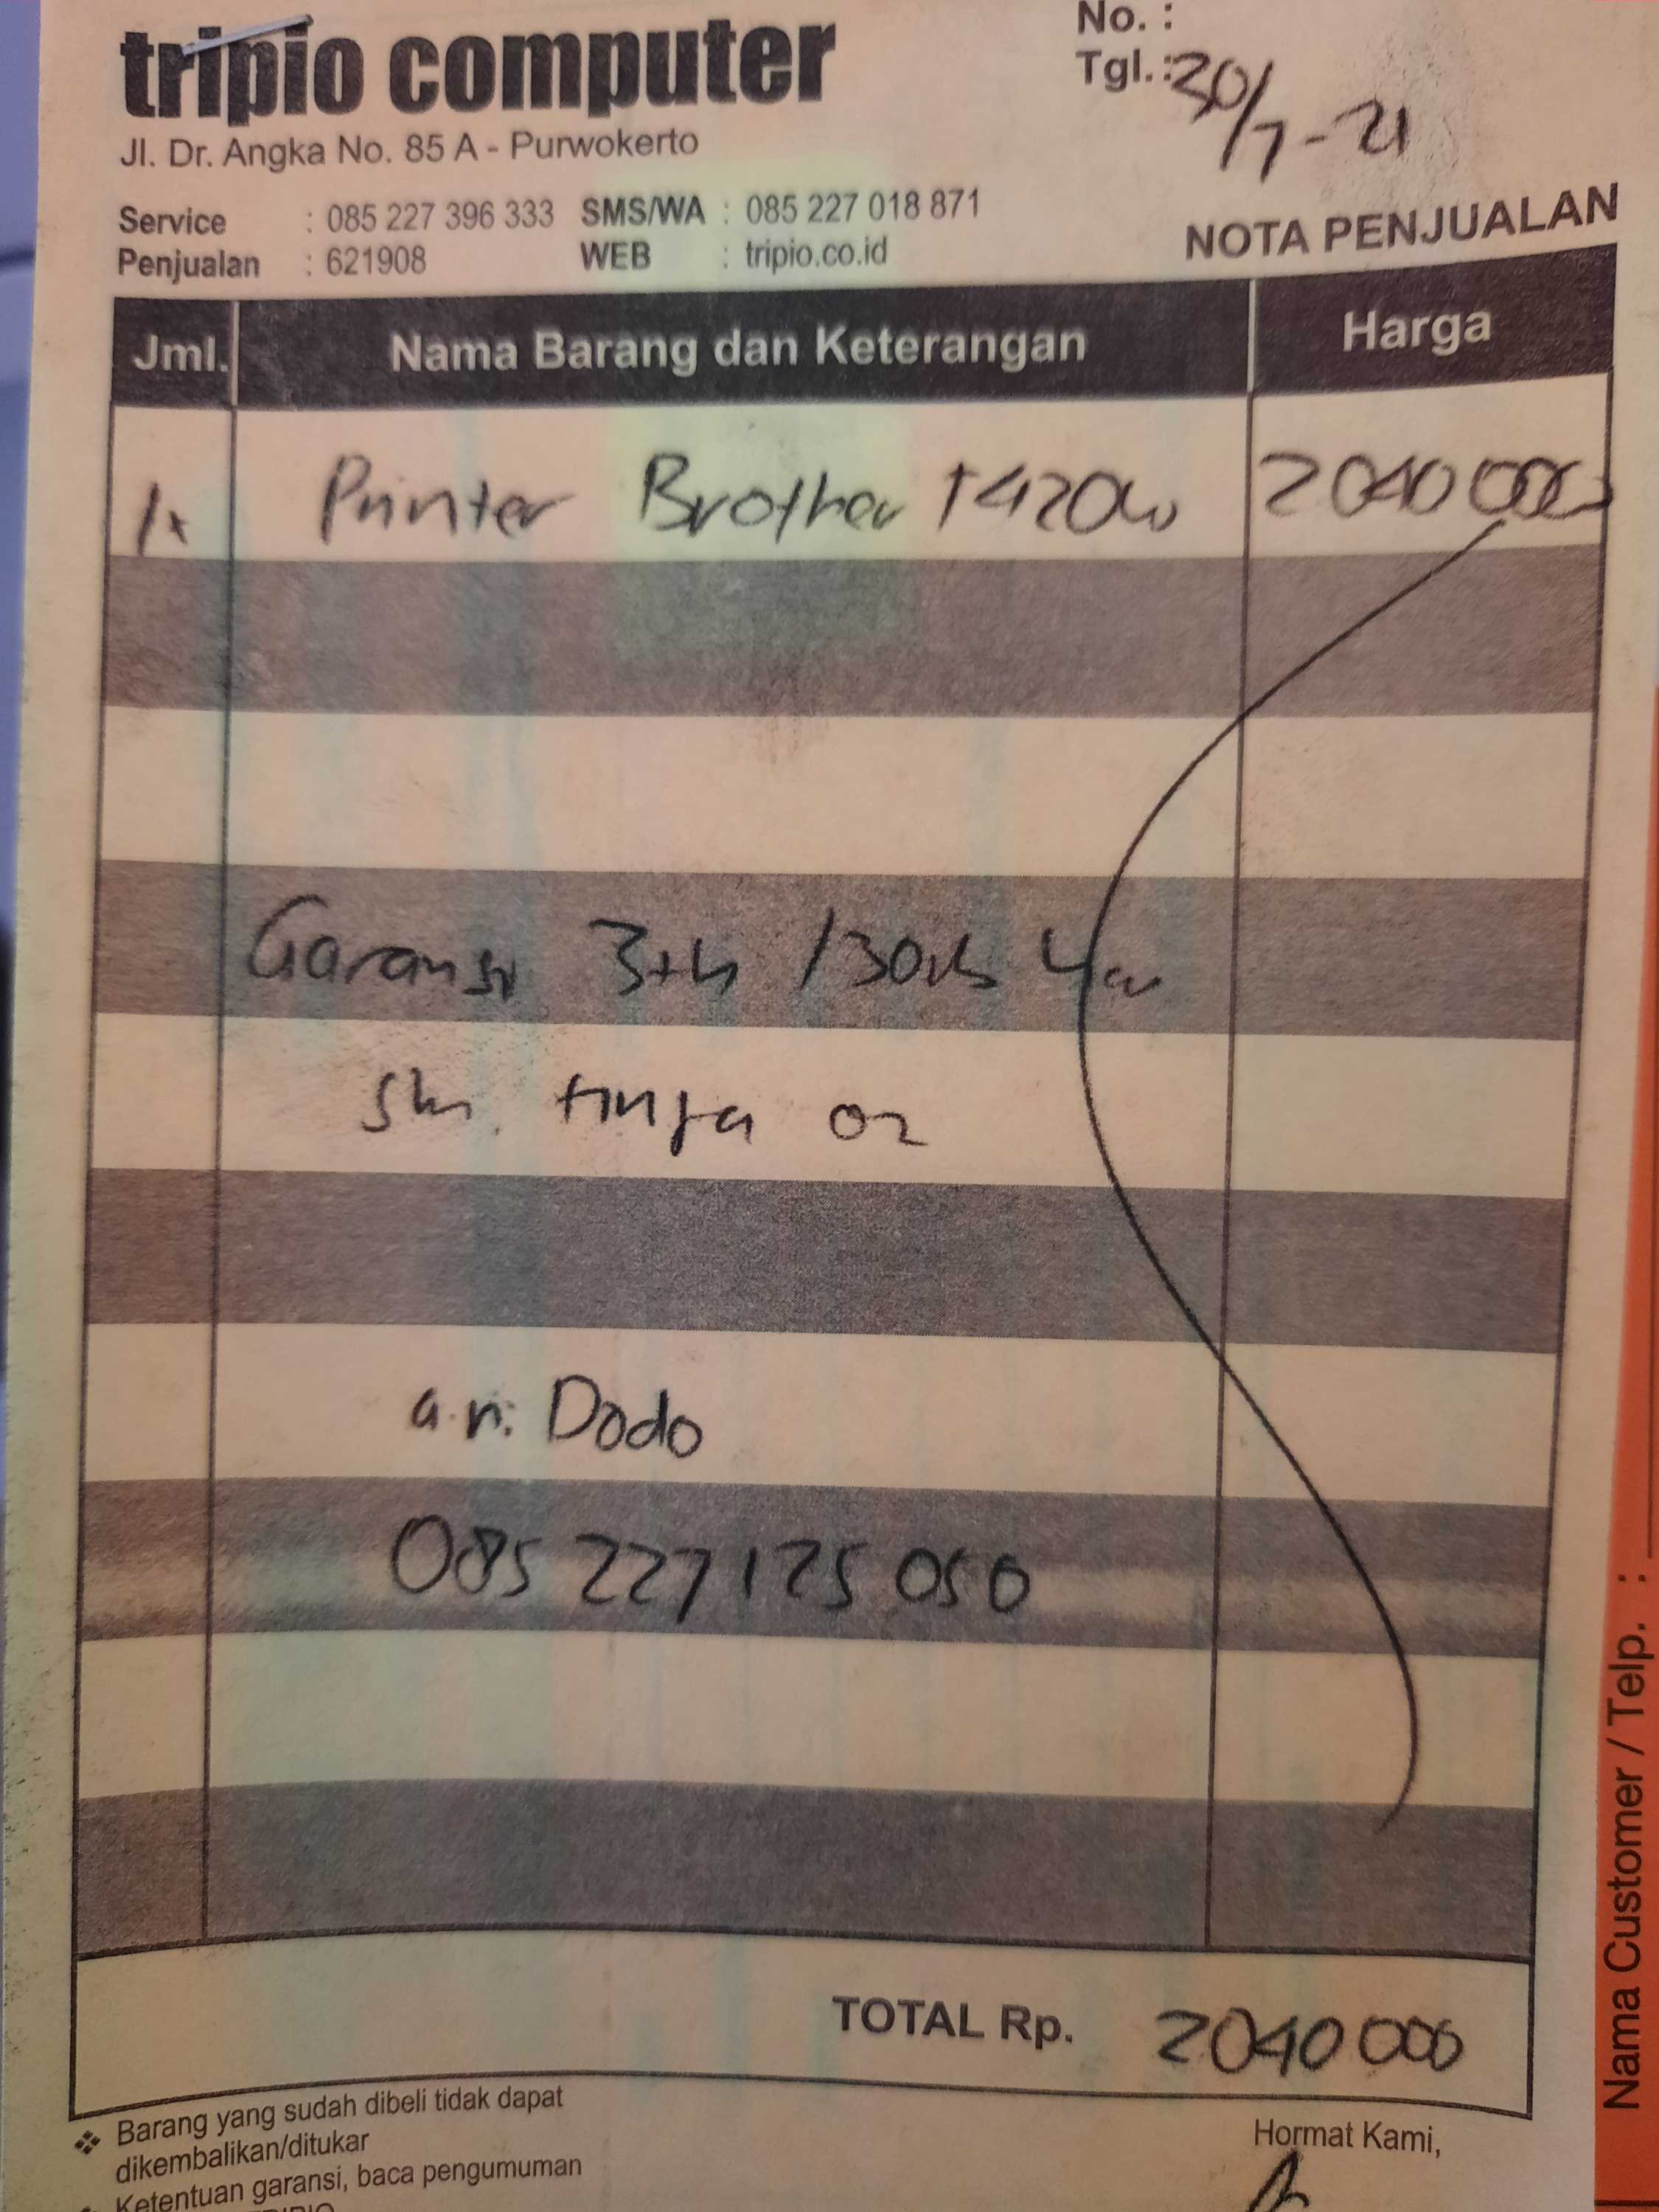 tripio computer
Jl. Dr. Angka No. 85 A - Purwokerto
Service : 085 227 396 333 SMS/WA : 085 227 018 871
Penjualan : 621908 WEB : tripio.co.id
No. :
Tgl. : 30/7-21
NOTA PENJUALAN
Jml. Nama Barang dan Keterangan Harga
1x Printer Brother T420w 2040000
Garansi 3th /30rb
a.n. Dodo
085 227 125 050
TOTAL Rp. 2040 000
Barang yang sudah dibeli tidak dapat
dikembalikan/ditukar
Ketentuan garansi, baca pengumuman
Hormat Kami,
Nama Customer / Telp. :